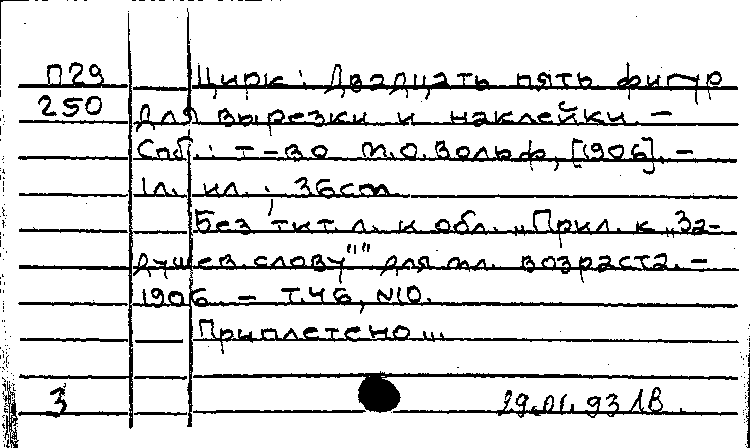 П29 Цирк: Двадцать пять фигур
250 для вырезки и наклейки. –
Спб.: т-во М.О.Вольф, [1906]. –
1л. ил.; 36см
Без тит.л. и обл. „Прил. к „За-
душев. слову"" для мл. возраста. –
1906 – Т.46, N10.
Приплетено...
3 29.01.93 ЛВ.